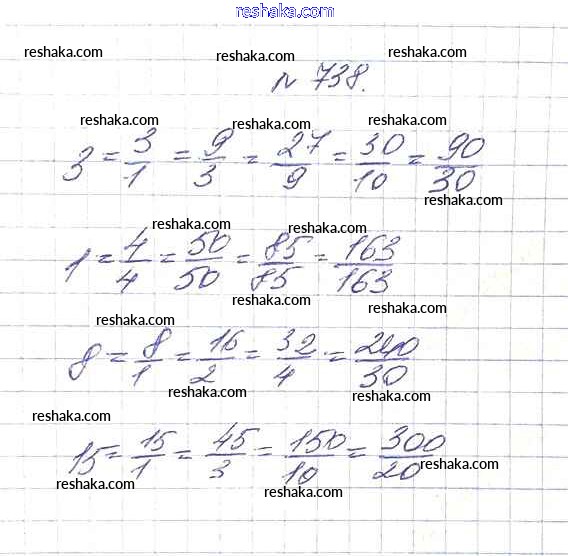 reshaka.com
reshaka.com reshaka.com reshaka.com
№ 738.
reshaka.com reshaka.com reshaka.com
3 = 3/1 = 9/3 = 27/9 = 30/10 = 90/30
reshaka.com
reshaka.com reshaka.com
1 = 4/4 = 50/50 = 85/85 = 163/163
reshaka.com reshaka.com reshaka.com
8 = 8/1 = 16/2 = 32/4 = 240/30
reshaka.com reshaka.com
reshaka.com
15 = 15/1 = 45/3 = 150/10 = 300/20
reshaka.com
reshaka.com reshaka.com